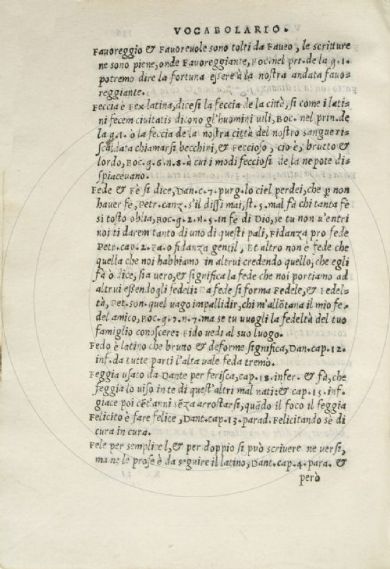 VOCABOLARIO.
Favoreggio & Favorevole sono tolti da Faveo, le scritture
ne sono piene, onde Favoreggiante, Boc. nel prī. de la g. 1.
potremo dire la fortuna essere à la nostra andata favo=
reggiante.
Feccia è Fex latina, dicesi la feccia de la città, si come i lati=
ni fecem civitatis dicono gl'huomini vili, Boc. nel prin. de
la g. 1. ò la feccia de la nostra città del nostro sangue ri=
scaldata chiamarsi becchini, & Feccioso, cio è, brutto &
lordo, Boc. g. 6. n. 8. à cui i modi fecciosi de la nepote di=
spiacevano.
Fede & Fè si dice, Dan. c. 7. purg. lo ciel perdei, che p non
haver fe, Petr. canz. s'il dissi mai, st. 5. mal fà chi tanta fè
si tosto oblia, Boc. g. 2. n. 5. in fè di Dio, se tu non v'entri
noi ti darem tanto di uno di questi pali, Fidanza pro fede
Petr. cap. 2. Fa. o fidanza gentil, Et altro non è fede che
quella che noi habbiamo in altrui credendo quello, che egli
fà ò dice, sia vero, & significa la fede che noi portiamo ad
altrui essendogli fedeli: Da fede si forma Fedele, & Fedel=
tà, Pet. son. quel vago impallidir, chi m'allōtana il mio fe=
del amico, Boc. g. 7. n. 7. ma se tu vuogli la fedeltà del tuo
famiglio conoscere: Fido vedi al suo luogo.
Fedo è latino che bruno & deforme significa, Dan. cap. 12.
inf. da tutte parti l'alta valle feda tremò.
Feggia usato da Dante per ferisca, cap. 18. infer. & fà, che
feggia lo viso in te di quest'altri mal nati: & cap. 15. inf.
giace poi cēt'anni sēza arrostarsi, quādo il foco il feggia
Felicito è fare felice, Dant. cap. 13. parad. Felicitando sè di
cura in cura.
Fele per semplice l, & per doppio si può scrivere ne versi,
ma ne le prose è da seguire il latino, Dant. cap. 4. para. &
però